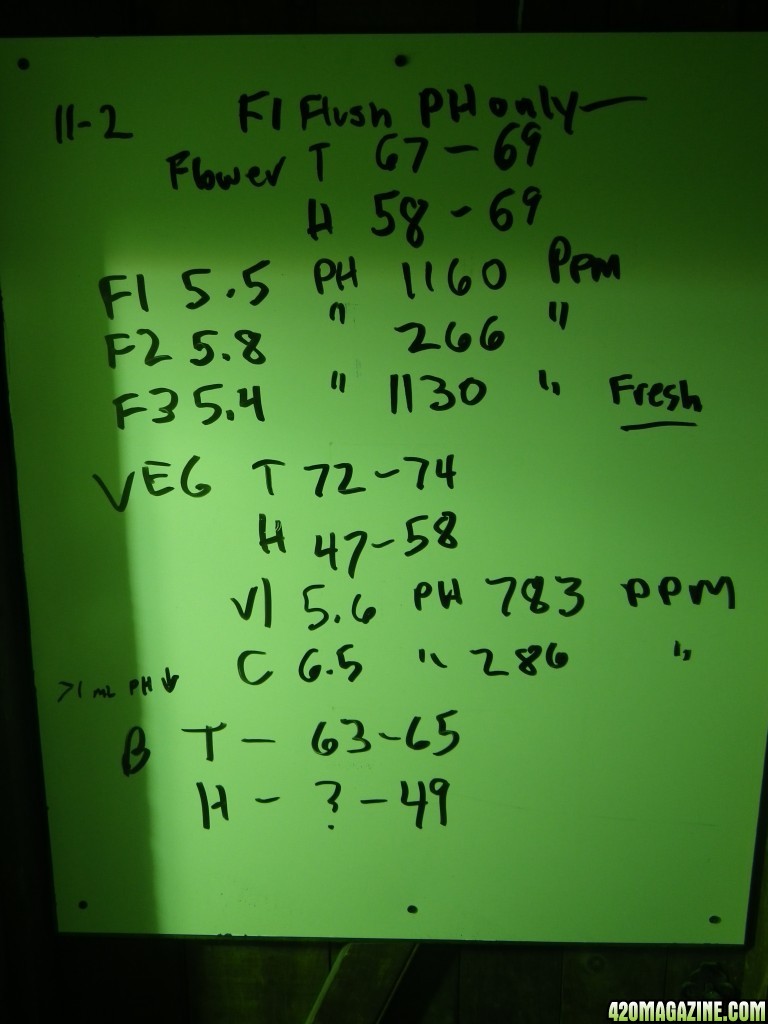 11-2 F1 Flush PH only—
Flower T 67-69
H 58-69
F1 5.5 PH 1160 PPM
F2 5.8 " 266 "
F3 5.4 " 1130 " Fresh
VEG T 72-74
H 47-58
V1 5.6 PH 783 PPM
C 6.5 " 286 "
>1 mL PH↓
B T - 63-65
H - ? - 49
420MAGAZINE.COM